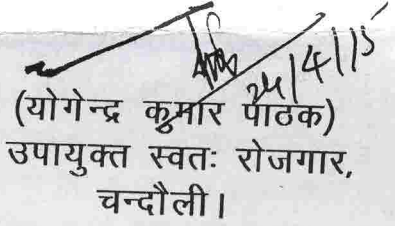 24/4/15
(योगेन्द्र कुमार पाठक)
उपायुक्त स्वतः रोजगार,
चन्दौली।